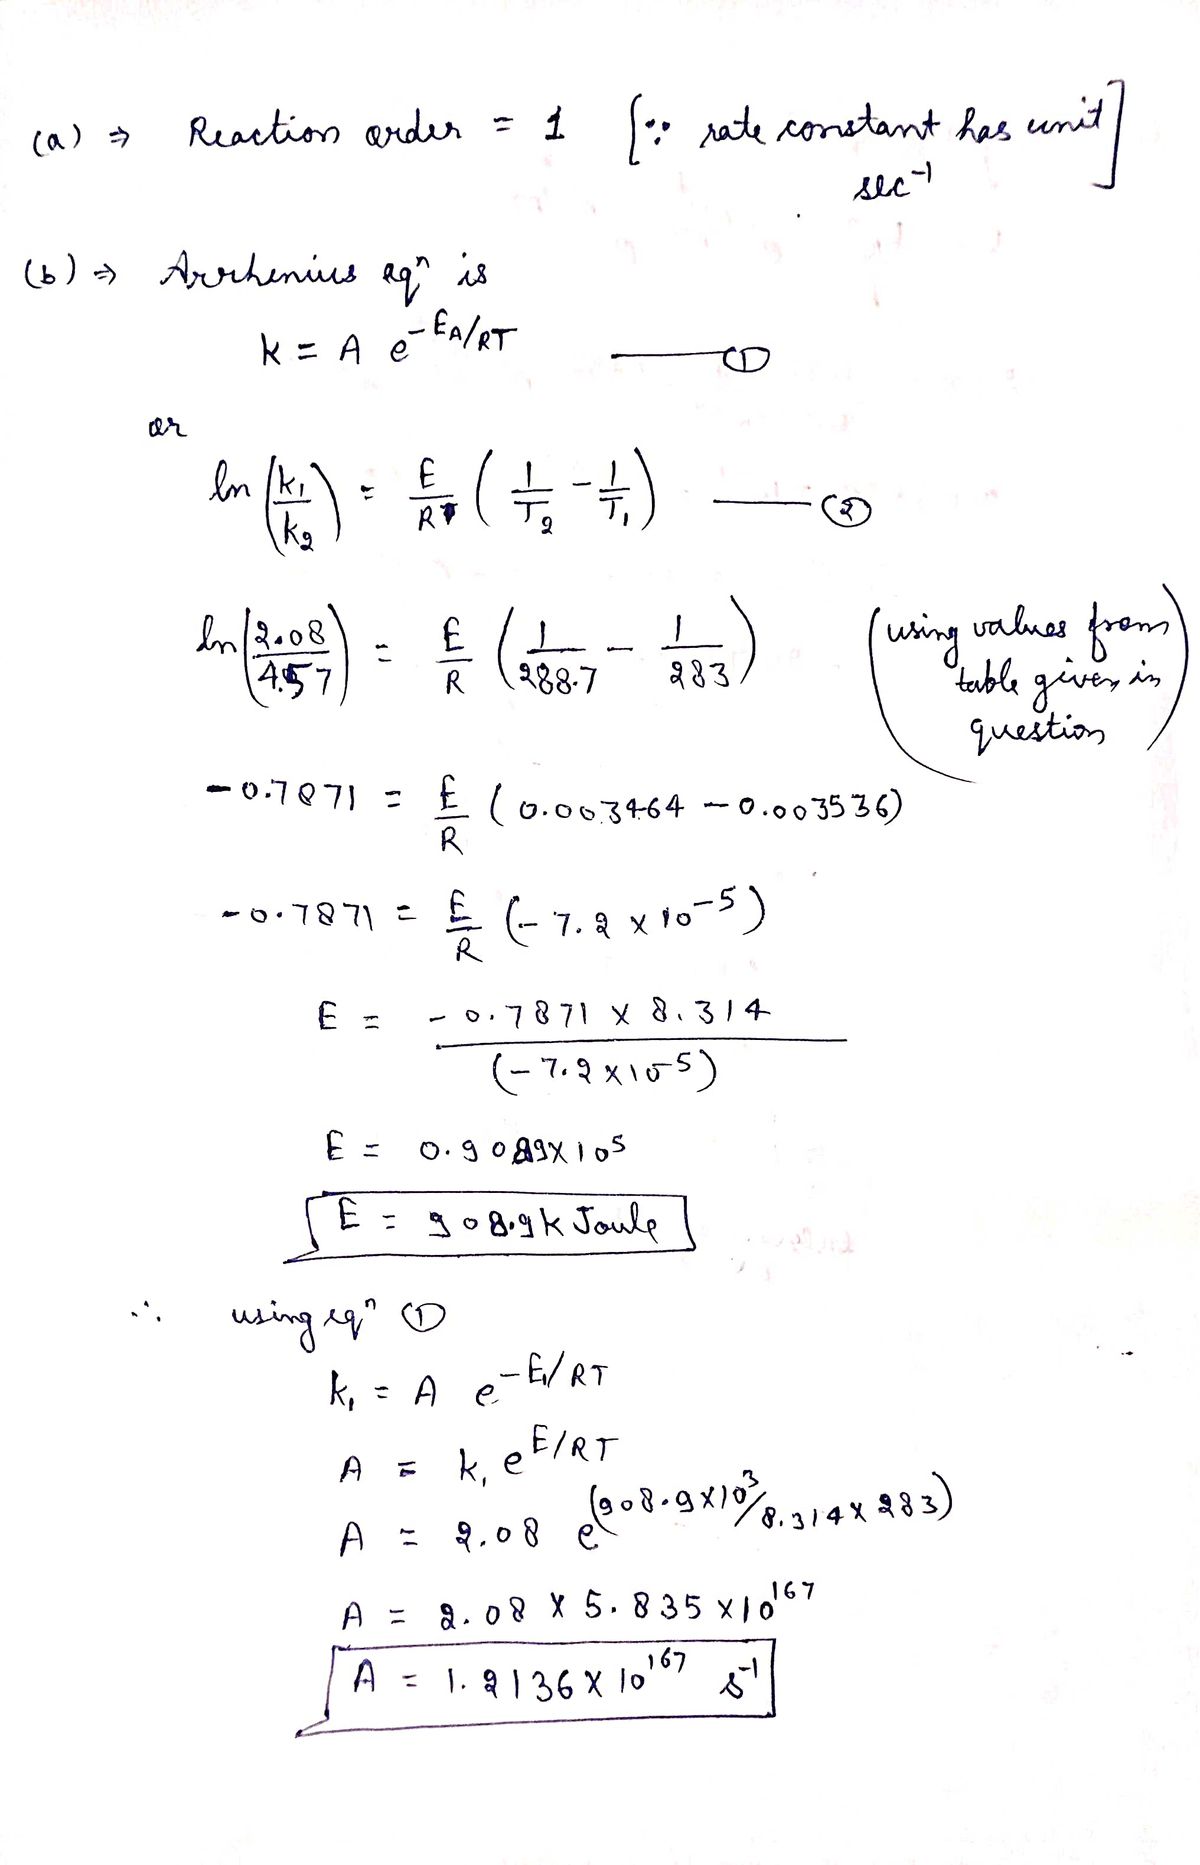 (a) ⇒ Reaction order = 1 [∵ rate constant has unit
sec⁻¹]
(b) ⇒ Arrhenius eqⁿ is
k = A e^(-EA/RT) ——— ①
or
ln (k₁/k₂) = E/R (1/T₂ - 1/T₁) ——— ②
ln (2.08/4.57) = E/R (1/288.7 - 1/283) (using values from
table given in
question)
-0.7871 = E/R (0.003464 - 0.003536)
-0.7871 = E/R (-7.2 x 10⁻⁵)
E = -0.7871 x 8.314 / (-7.2 x 10⁻⁵)
E = 0.9089 x 10⁵
E = 908.9 k Joule
∴ using eqⁿ ①
k₁ = A e^(-E/RT)
A = k₁ e^(E/RT)
A = 2.08 e^(908.9 x 10³/8.314 x 283)
A = 2.08 x 5.835 x 10¹⁶⁷
A = 1.2136 x 10¹⁶⁷ s⁻¹